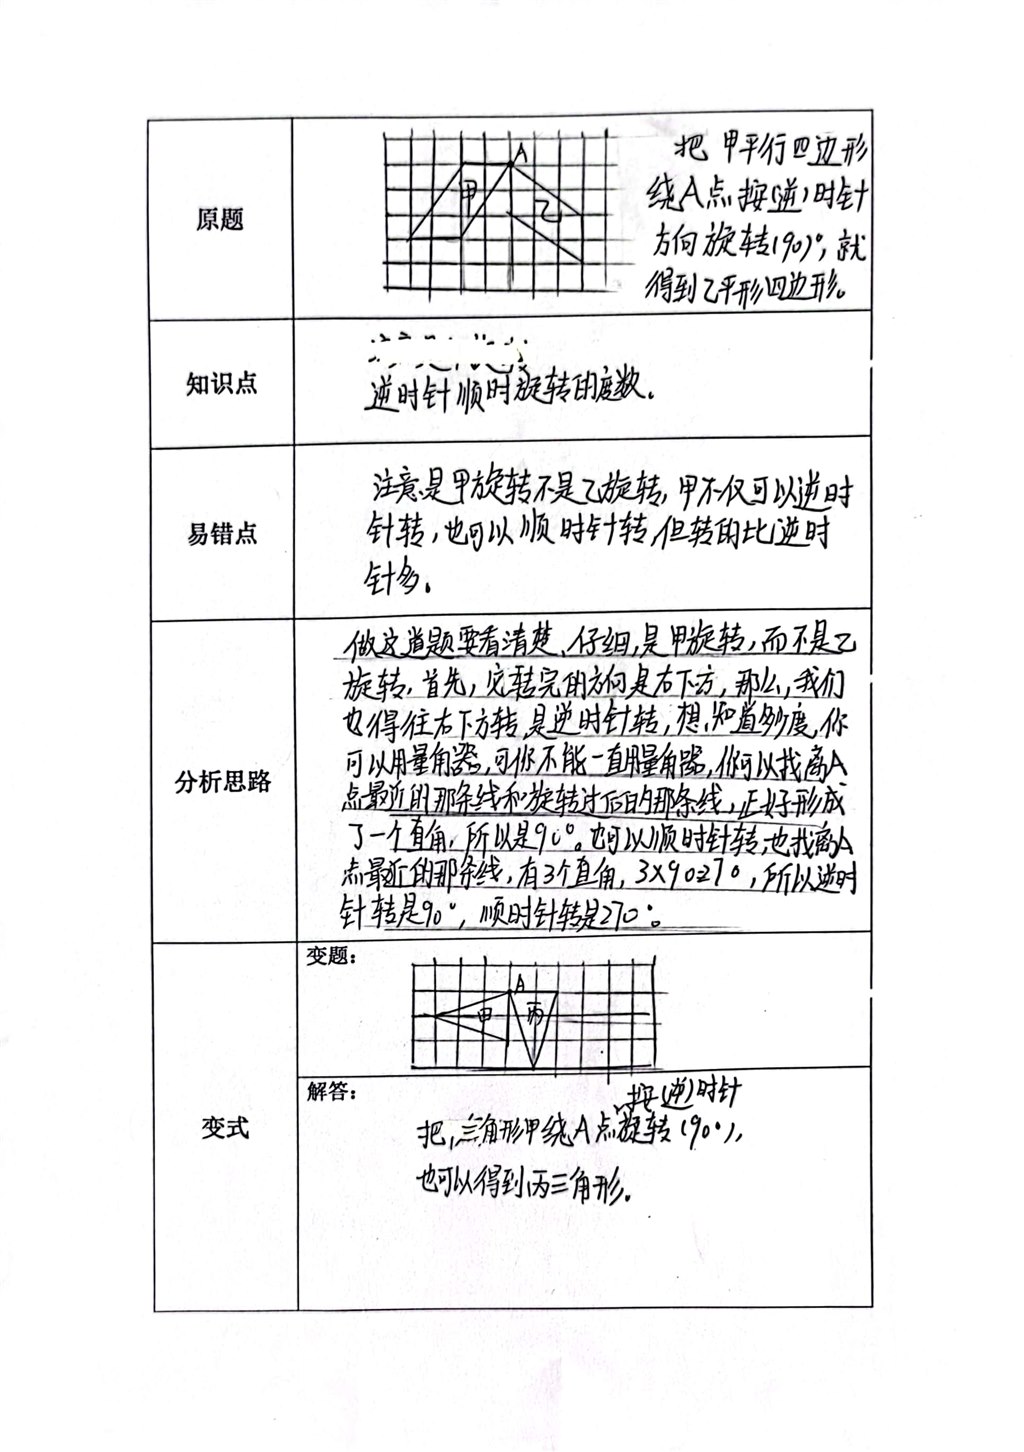 原题
A
甲
乙
把甲平行四边形
绕A点按(逆)时针
方向旋转(90)°,就
得到乙平形四边形。
知识点
逆时针顺时旋转的度数。
易错点
注意是甲旋转不是乙旋转,甲不仅可以逆时
针转,也可以顺时针转,但转的比逆时
针多。
分析思路
做这道题要看清楚、仔细,是甲旋转,而不是乙
旋转,首先,它转完的方向是右下方,那么,我们
也得往右下方转,是逆时针转,想知道多少度,你
可以用量角器,可你不能一直用量角器,你可以找离A
点最近的那条线和旋转过后的那条线,正好形成
了一个直角,所以是90°。也可以顺时针转,也找离A
点最近的那条线,有3个直角,3×90270,所以逆时
针转是90°,顺时针转是270°。
变式
变题:
A
甲
丙
解答:
按(逆)时针
把,三角形甲绕A点旋转(90°),
也可以得到丙三角形。